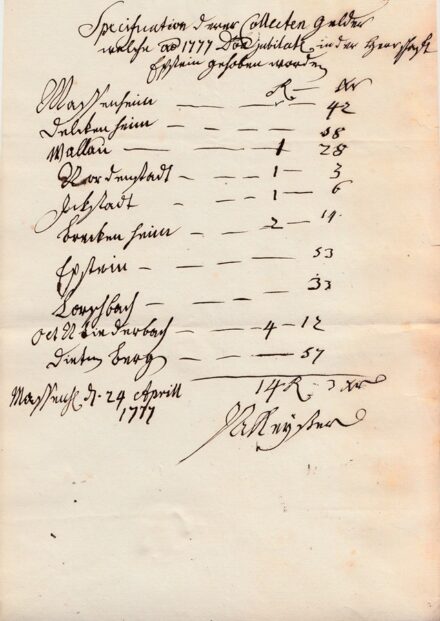 Specification derer Collecten Gelder
welche ao 1777 Dom jubilate in der Herrschafft
Epstein gehoben worden
R. – Xr
Massenheim — — — 42
Delckenheim — — — 58
Wallau — 1 — 28
Nordenstadt — 1 — 3
Ickstadt — — 1 — 6
Breckenheim — — 2 — 19.
Epstein — — — 53
Lorschbach — — 33
Oct Niederbach — — 4 — 12
Dietenberg — — — 57
14 R. — 3 Xr
Massenh. d. 24 Aprill
1777